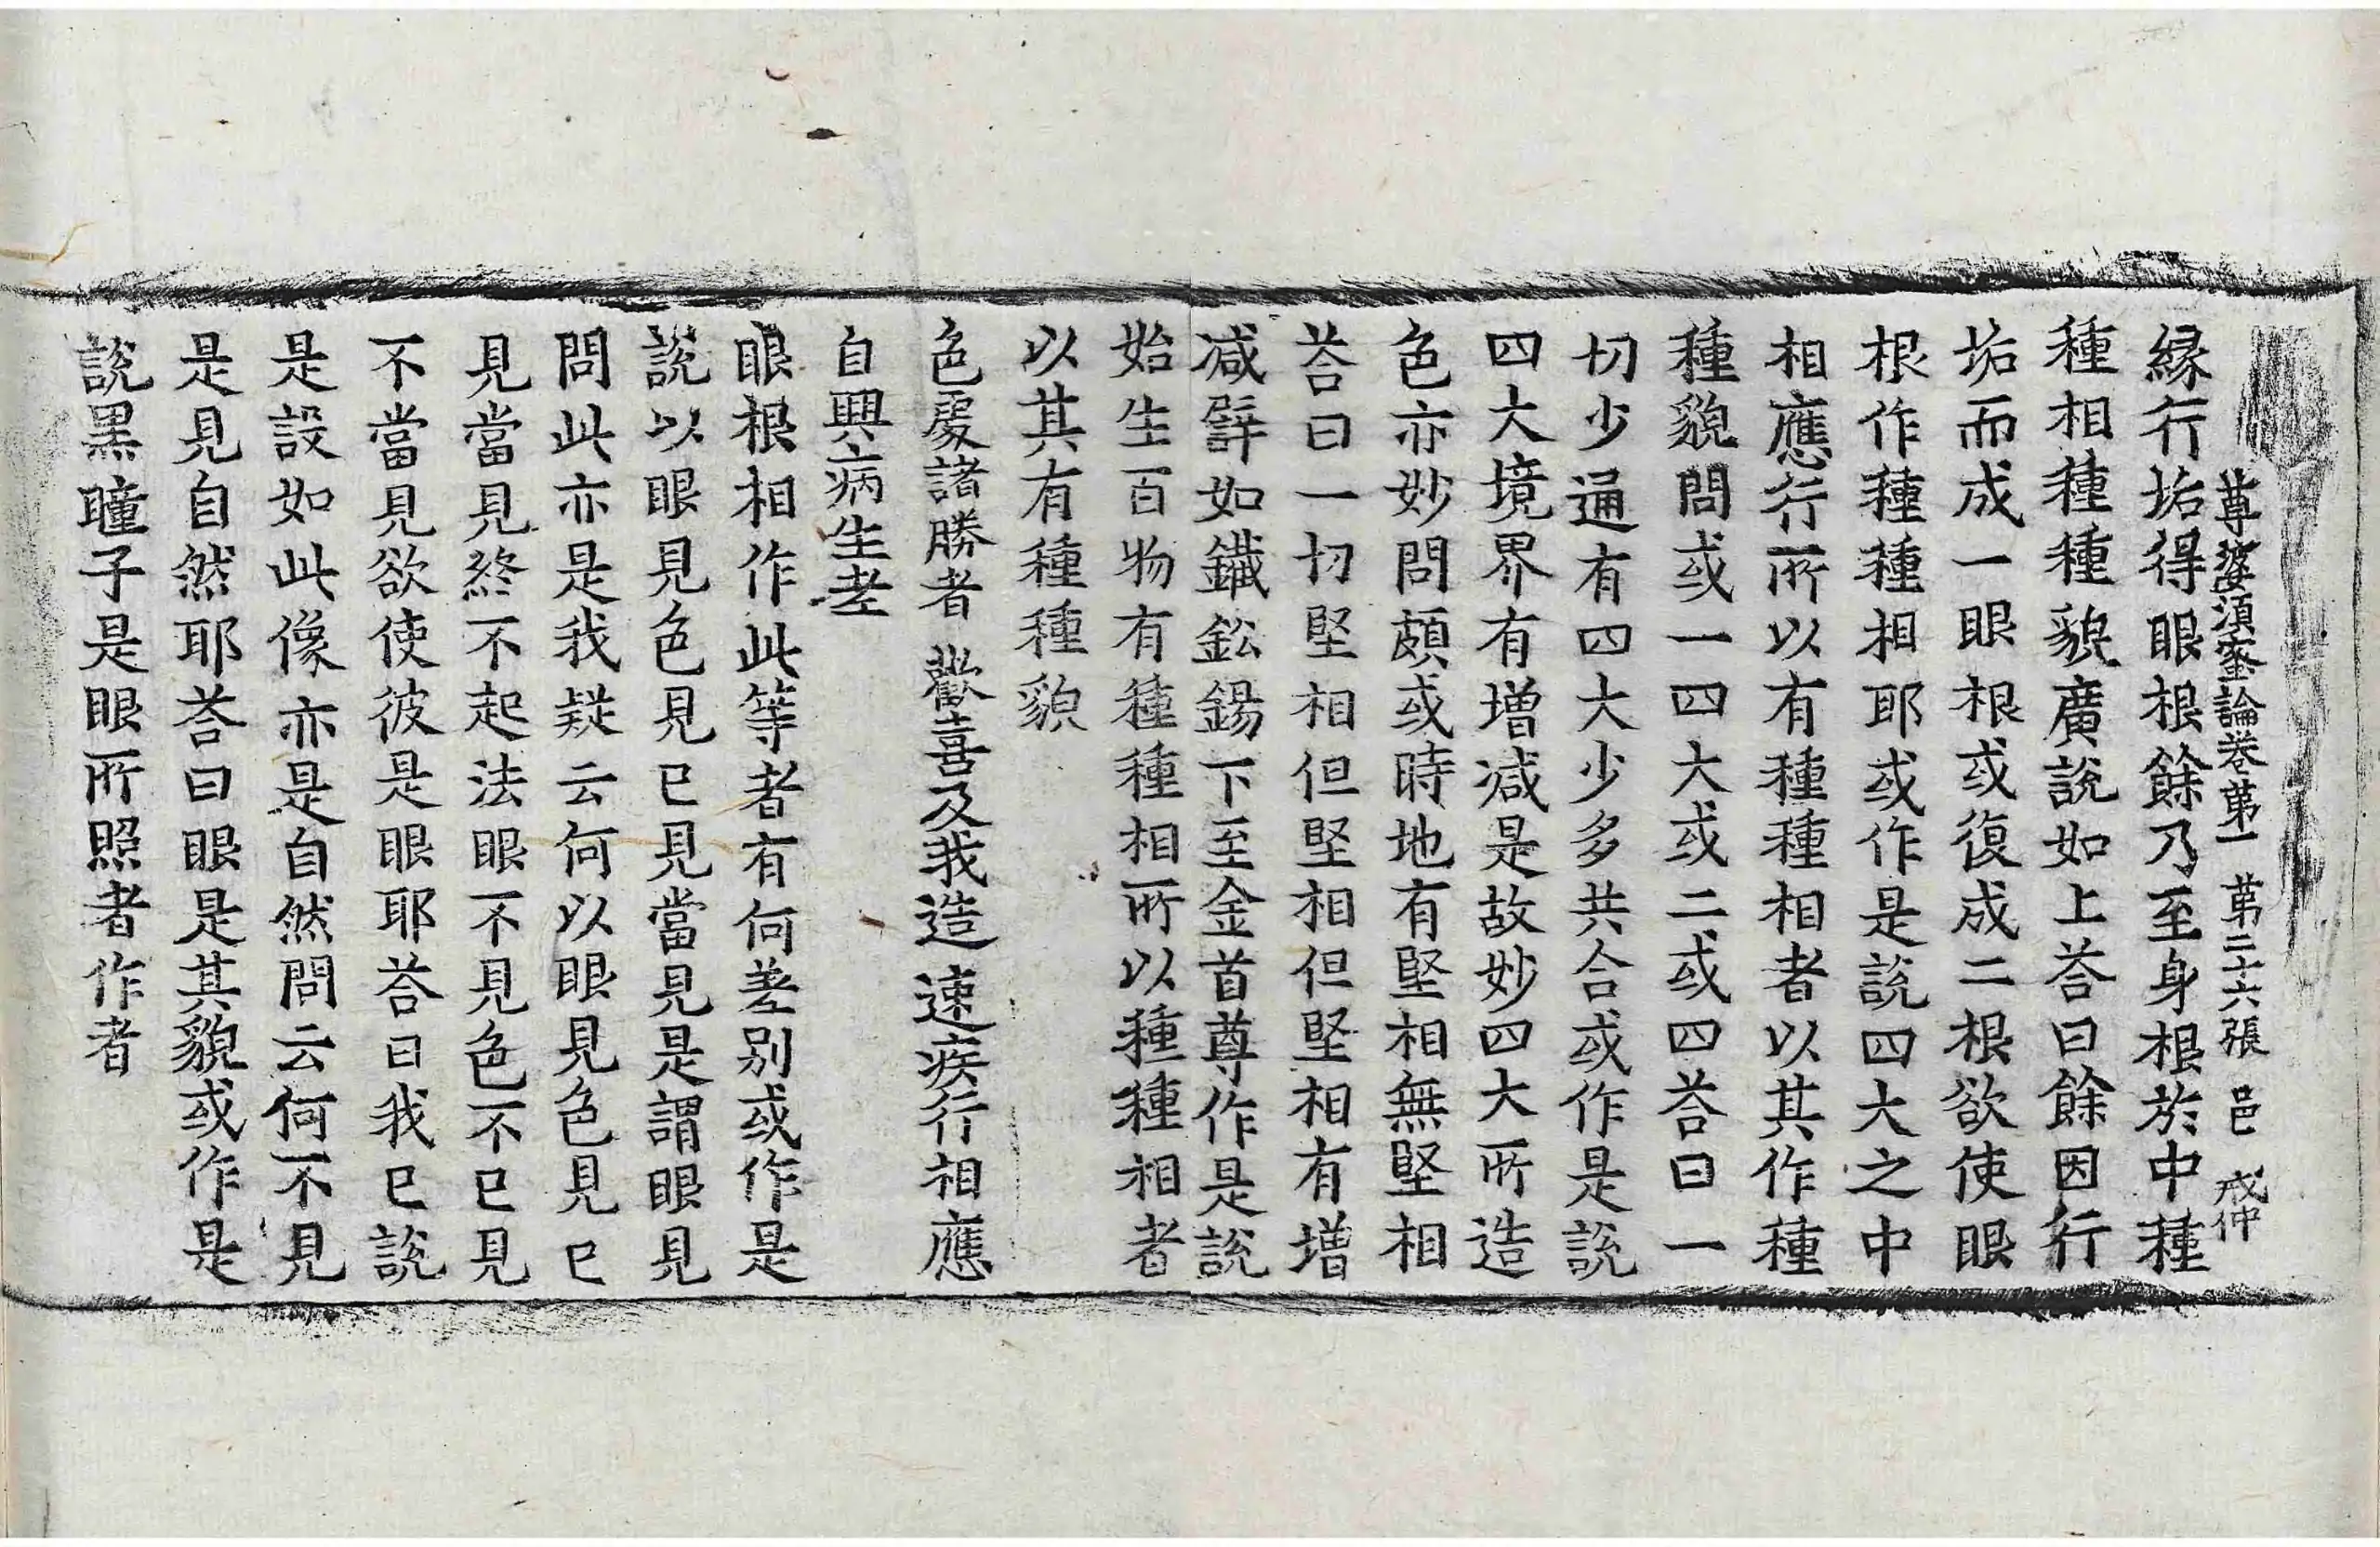 尊婆須蜜論卷第一 第二十六張 邑 戒仲
緣行垢得眼根餘乃至身根於中種
種相種種貌廣說如上荅曰餘因行
垢而成一眼根或復成二根欲使眼
根作種種相耶或作是說四大之中
相應行所以有種種相者以其作種
種貌問或一四大或二或四荅曰一
切少遍有四大少多共合或作是說
四大境界有增減是故妙四大所造
色亦妙問頗或時地有堅相無堅相
荅曰一切堅相但堅相但堅相有增
减譬如鐵鈆錫下至金首尊作是說
始生百物有種種相所以種種相者
以其有種種貌
色處諸勝者 歡喜及我造 速疾行相應
自興病生老
眼根相作此等者有何差別或作是
說以眼見色見已見當見是謂眼見
問此亦是我疑云何以眼見色見已
見當見終不起法眼不見色不已見
不當見欲使彼是眼耶荅曰我已說
是設如此像亦是自然問云何不見
是見自然耶荅曰眼是其貌或作是
說黑瞳子是眼所照者作者